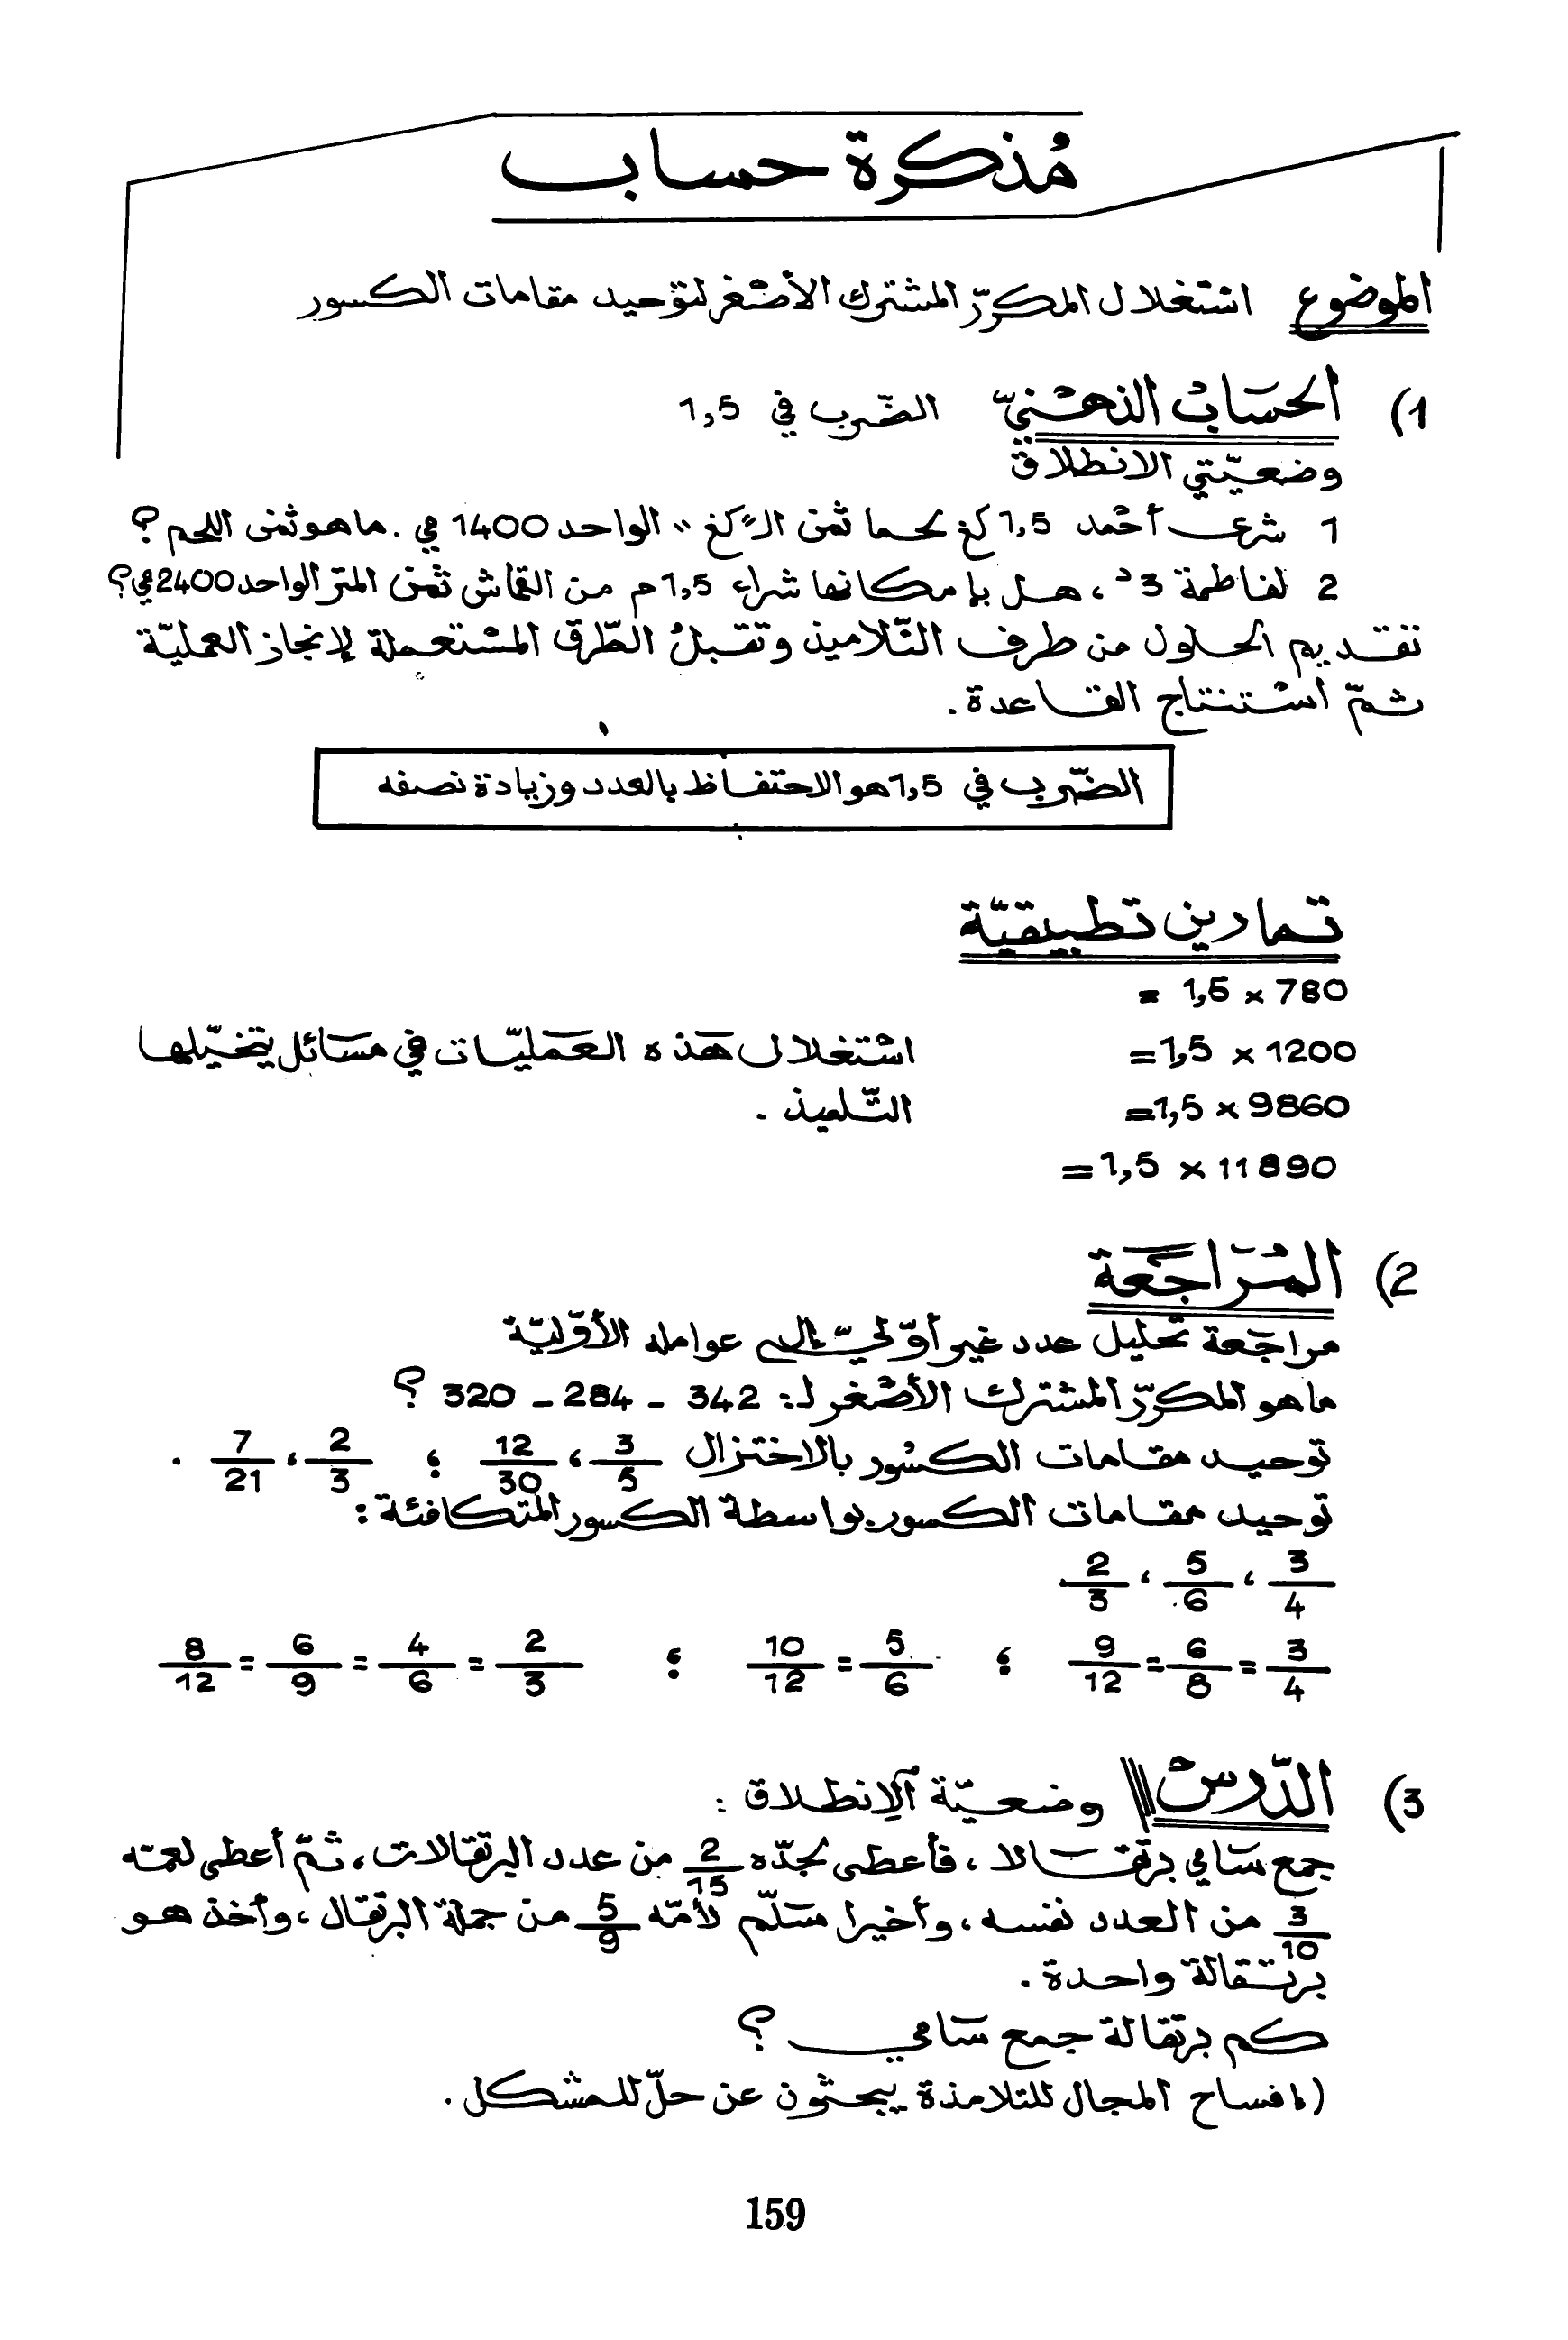 مُذكرة حساب
الموضوع استغلال المكرّر المشترك الأصغر لتوحيد مقامات الكسور
1) الحسَابُ الذهْنيّ الضّرب في 1,5
وضعيّتي الانطلاق
1 شرى أحْمد 1,5 كغ لحما ثمن الـ"كغ" الواحد 1400 مي . ما هو ثمن اللحم ؟
2 لفاطمة 3د ، هل بإمكانها شراء 1,5 م من القماش ثمن المتر الواحد 2400 مي؟
تقديم الحلول من طرف التّلاميذ وتقبلُ الطّرق المسْتعملة لإنجاز العمليّة
ثمّ اسْتنتاج القاعدة .
الضّرب في 1,5 هو الاحتفاظ بالعدد وزيادة نصفه
تمارين تطبيقيّة
780 × 1,5 =
1200 × 1,5 = اسْتغلال هَذه العَمليّات في مسَائل يتخيّلها
9860 × 1,5 = التّلميذ .
11890 × 1,5 =
2) المُرَاجَعَة
مراجَعة تحليل عدد غير أوّليّ إلى عوامله الأوّليّة
ما هو المكرّر المشترك الأصْغر لـ: 342 - 284 - 320 ؟
توحيد مقامات الكسُور بالاختزال 3/5 ، 12/30 ؛ 2/3 ، 7/21 .
توحيد مقامات الكسور بواسطة الكسور المتكافئة :
3/4 ، 5/6 ، 2/3
3/4 = 6/8 = 9/12 ؛ 5/6 = 10/12 ؛ 2/3 = 4/6 = 6/9 = 8/12
3) الدّرسْ وضعيّة الإنطلاق :
جمع سَامي برتقَالا ، فأعطى لجدّه 2/15 من عدد البرتقالات ، ثمّ أعطى لعمّته
3/10 من العدد نفسه ، وأخيرا سَلّم لأمّه 5/9 من جملة البرتقال ، وأخذ هو
برتقالة واحدة .
كم برتقالة جمع سَامي ؟
(إفساح المجال للتلامذة يبحثون عن حلّ للمشكل .
159